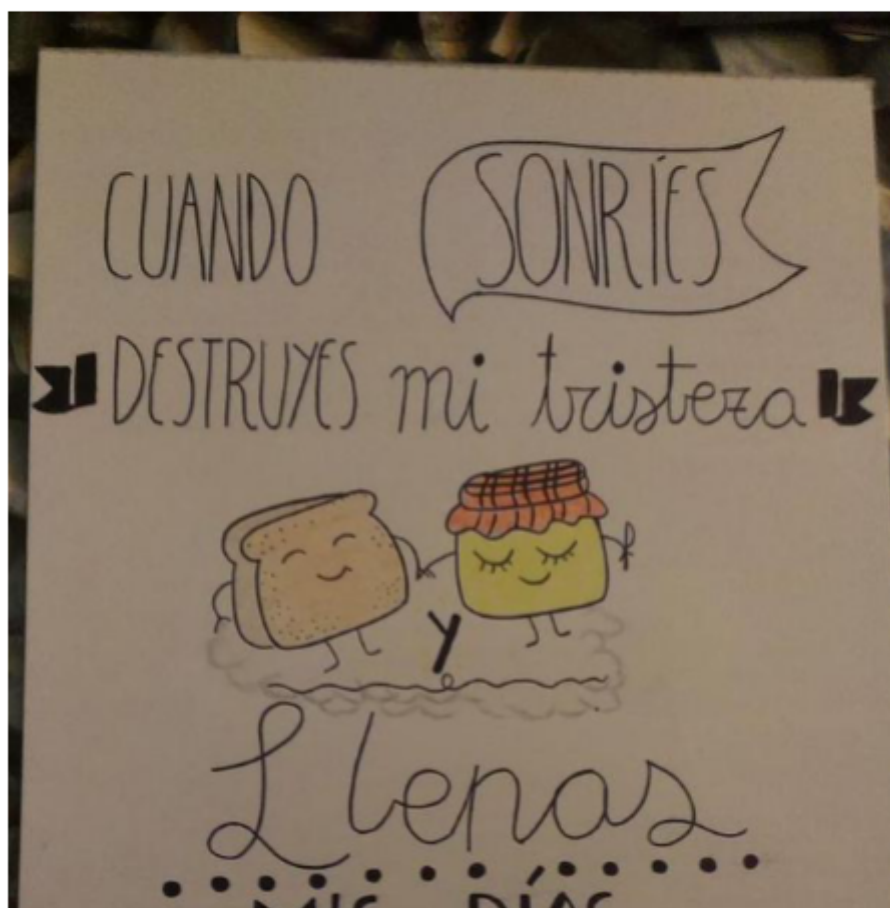 CUANDO SONRÍES
DESTRUYES mi tristeza
Y
Llenas
MIS DÍAS